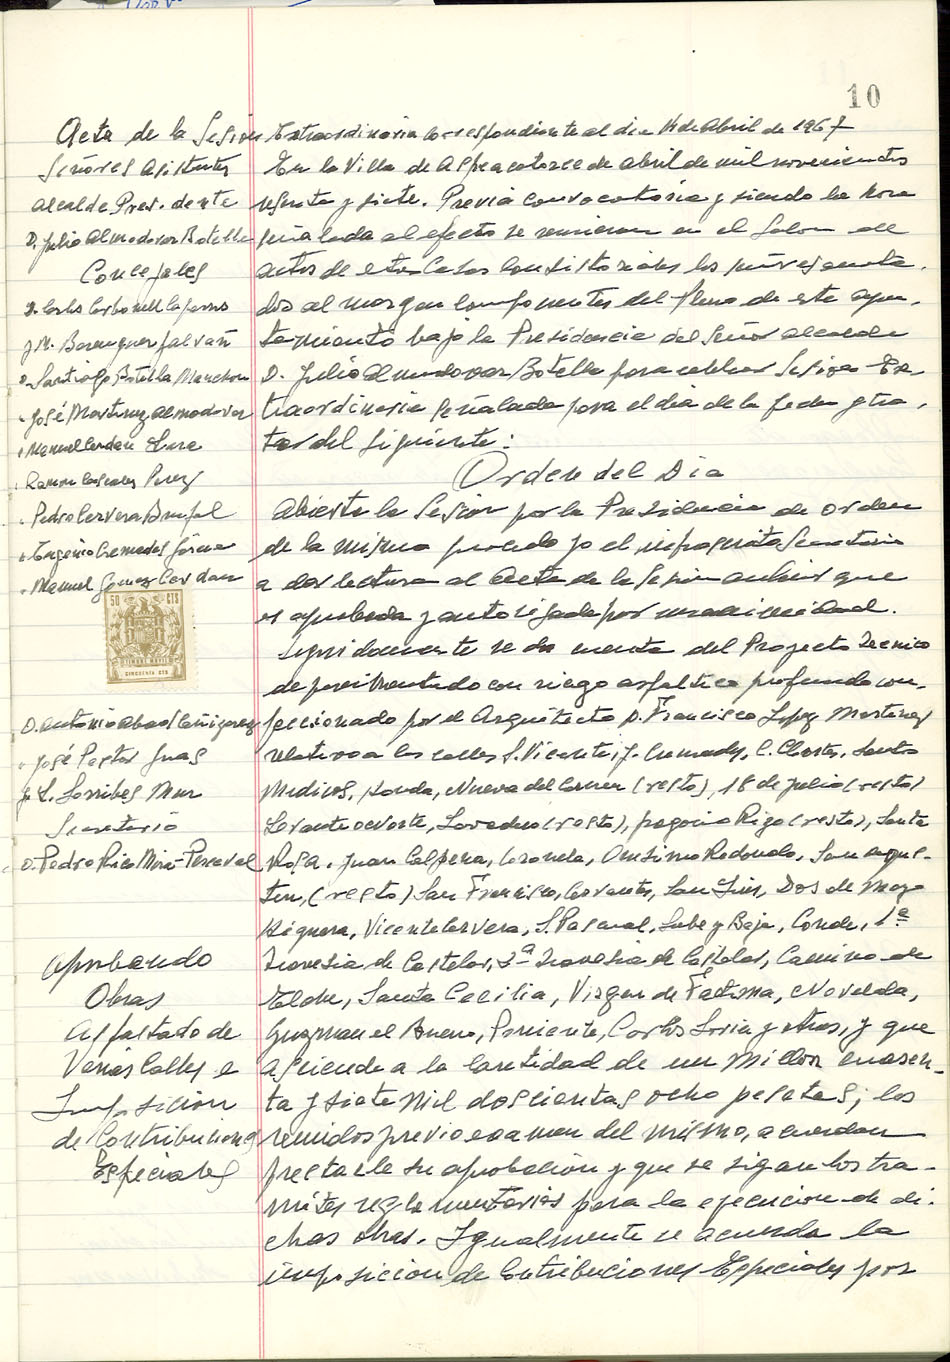 10
Acta de la Sesion Extraordinaria correspondiente al dia 14 de Abril de 1967
Señores Asistentes
Alcalde Presidente
D. Julio Almodovar Botella
Concejales
D. Carlos Carbonell
J. M. Berenguer Galvañ
D. Santiago Botella Manchon
José Martinez Almodovar
Manuel Cerdan
Ramon Cascales Perez
Pedro Cervera Brufal
Eugenio Cremades
Manuel Gomez Cerdan
50 CTS
TIMBRE MOVIL
CINCUENTA CTS
D. Antonio Abad Cañizares
José Pastor Juas
J. L. Sorribes Mur
Secretario
D. Pedro Rico Mira-Perceval
Aprobando
Obras
Asfaltado de
Varias Calles e
Imposicion
de Contribuciones
Especiales
En la Villa de Aspe a catorce de Abril de mil novecientos
sesenta y siete. Previa convocatoria y siendo la hora
señalada al efecto se reunieron en el Salon de
actos de estas Casas Consistoriales los señores anota-
dos al margen componentes del Pleno de este ayun-
tamiento bajo la Presidencia del Señor Alcalde
D. Julio Almodovar Botella para celebrar Sesion Ex-
traordinaria señalada para el dia de la fecha y tra-
tar del siguiente:
Orden del Dia
Abierta la Sesion por la Presidencia de orden
de la misma procedo yo el infrascrito Secretario
a dar lectura al Acta de la Sesion anterior que
es aprobada y autorizada por unanimidad.
Seguidamente se da cuenta del Proyecto Tecnico
de pavimentado con riego asfaltico profundo con-
feccionado por el Arquitecto D. Francisco Lopez Martinez
relativo a las calles S. Vicente, J. Cremades, C. Chartes, Santos
Medicos, Ronda, Nueva del Carmen (resto), 18 de Julio (resto)
Levante o Norte, Lavadero (resto), Gregorio Rizo (resto), Santa
Rosa, Juan Calpena, Coronela, Onesimo Redondo, San Agus-
tin, (resto) San Francisco, Cervantes, San Luis, Dos de Mayo
Higuera, Vicente Cervera, S. Pascual, Sube y Baja, Conde, 1ª
Travesia de Castelar, 2ª Travesia de Castelar, Camino de
Elche, Santa Cecilia, Virgen de Fatima, Novelda,
Guzman el Bueno, Poniente, Carlos Soria y otras, y que
asciende a la cantidad de un millon cuaren-
ta y siete mil doscientas ocho pesetas; los
reunidos previo examen del mismo, acuerdan
prestarle su aprobacion y que se sigan los tra-
mites reglamentarios para la ejecucion de di-
chas obras. Igualmente se acuerda la
imposicion de Contribuciones Especiales por